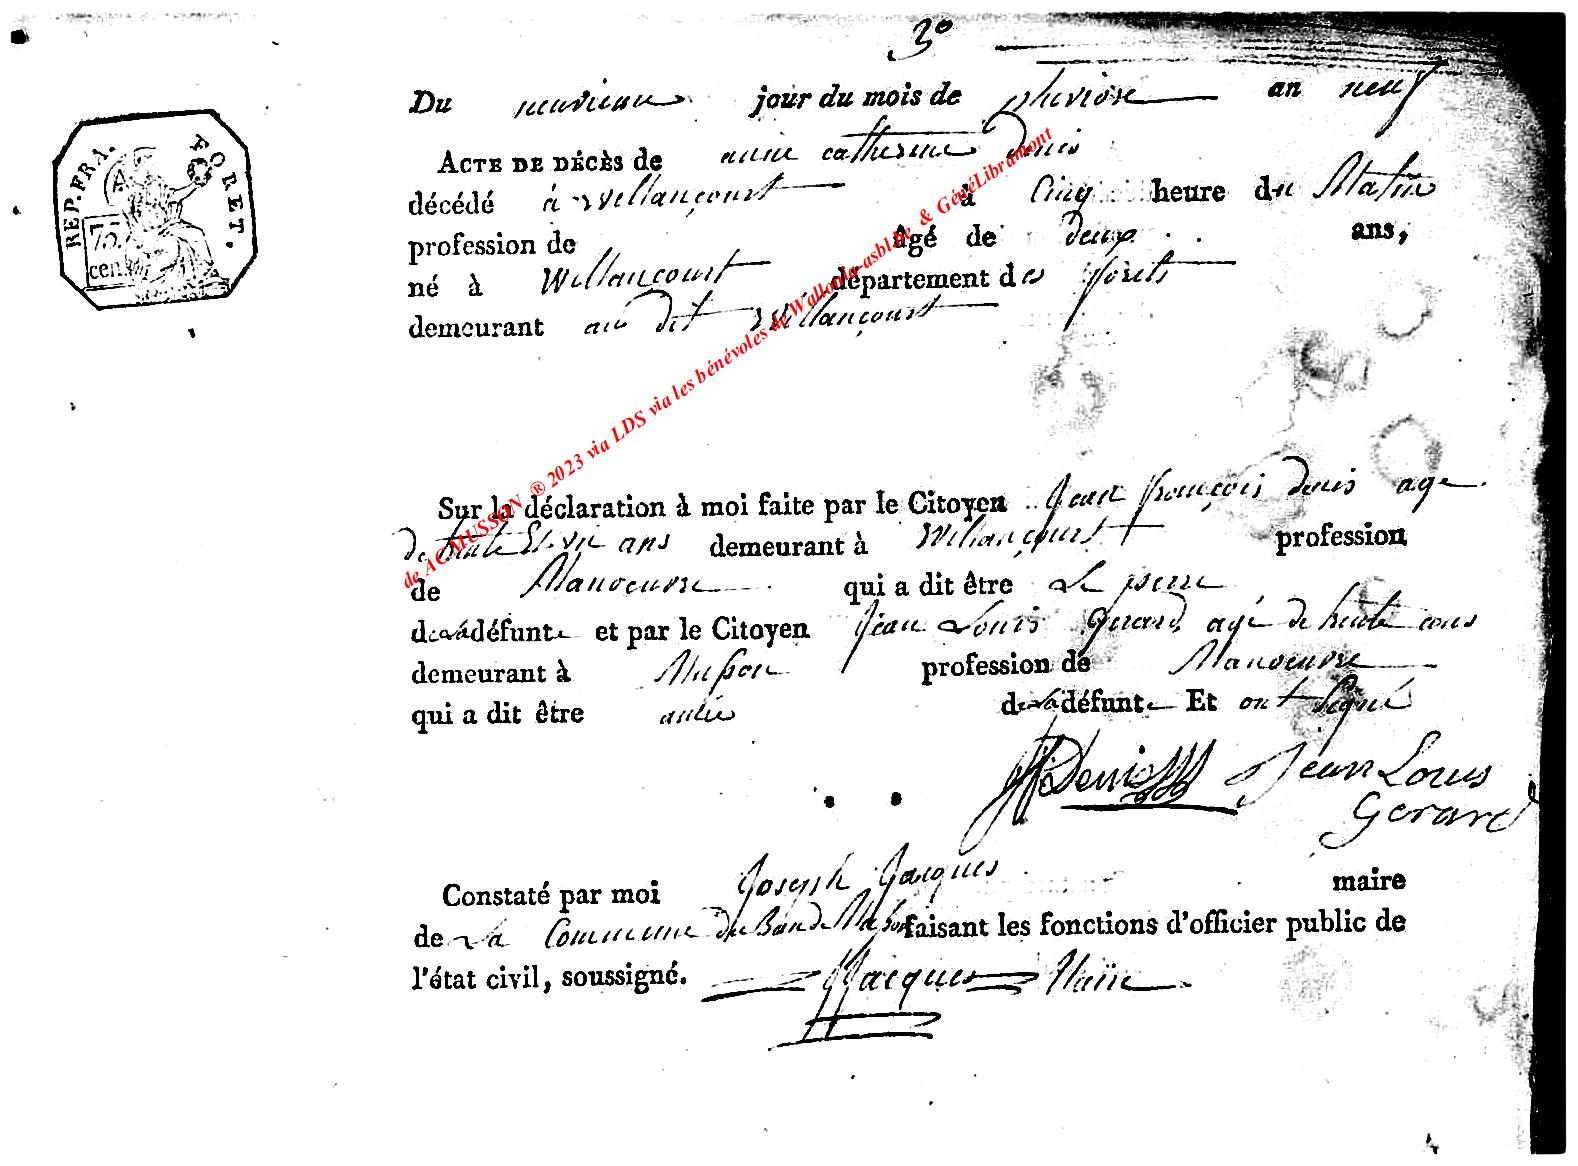 3º
Du neuvieme jour du mois de pluviose an neuf
REP. FRA. FORET.
75 cen.
ACTE DE DÉCÈS de anne catherine denis
décédé à Willancourt à Cinq heure du Matin
profession de âgé de deux ans,
né à Willancourt département des forets
demeurant au dit Willancourt
de ACMUSSON ® 2023 via LDS via les bénévoles de Wallonia-asbl.be & GénéLibramont
Sur la déclaration à moi faite par le Citoyen Jean françois denis age
de trente Et un ans demeurant à Willancourt profession
de Manoeuvre qui a dit être Le pere
de la défunte et par le Citoyen Jean Louis Gerard agé de trente ans
demeurant à Musson profession de Manoeuvre
qui a dit être amie de la défunte Et ont signé
Denis Jean Louis
Gerard
Constaté par moi Joseph Jacques maire
de La Commune du Ban de Musson faisant les fonctions d'officier public de
l'état civil, soussigné. JJacques Maire